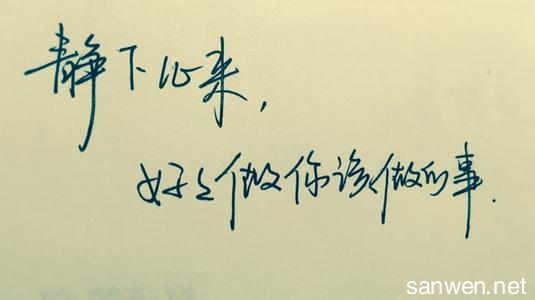 静下心来,
好々做你该做的事.
sanwen.net